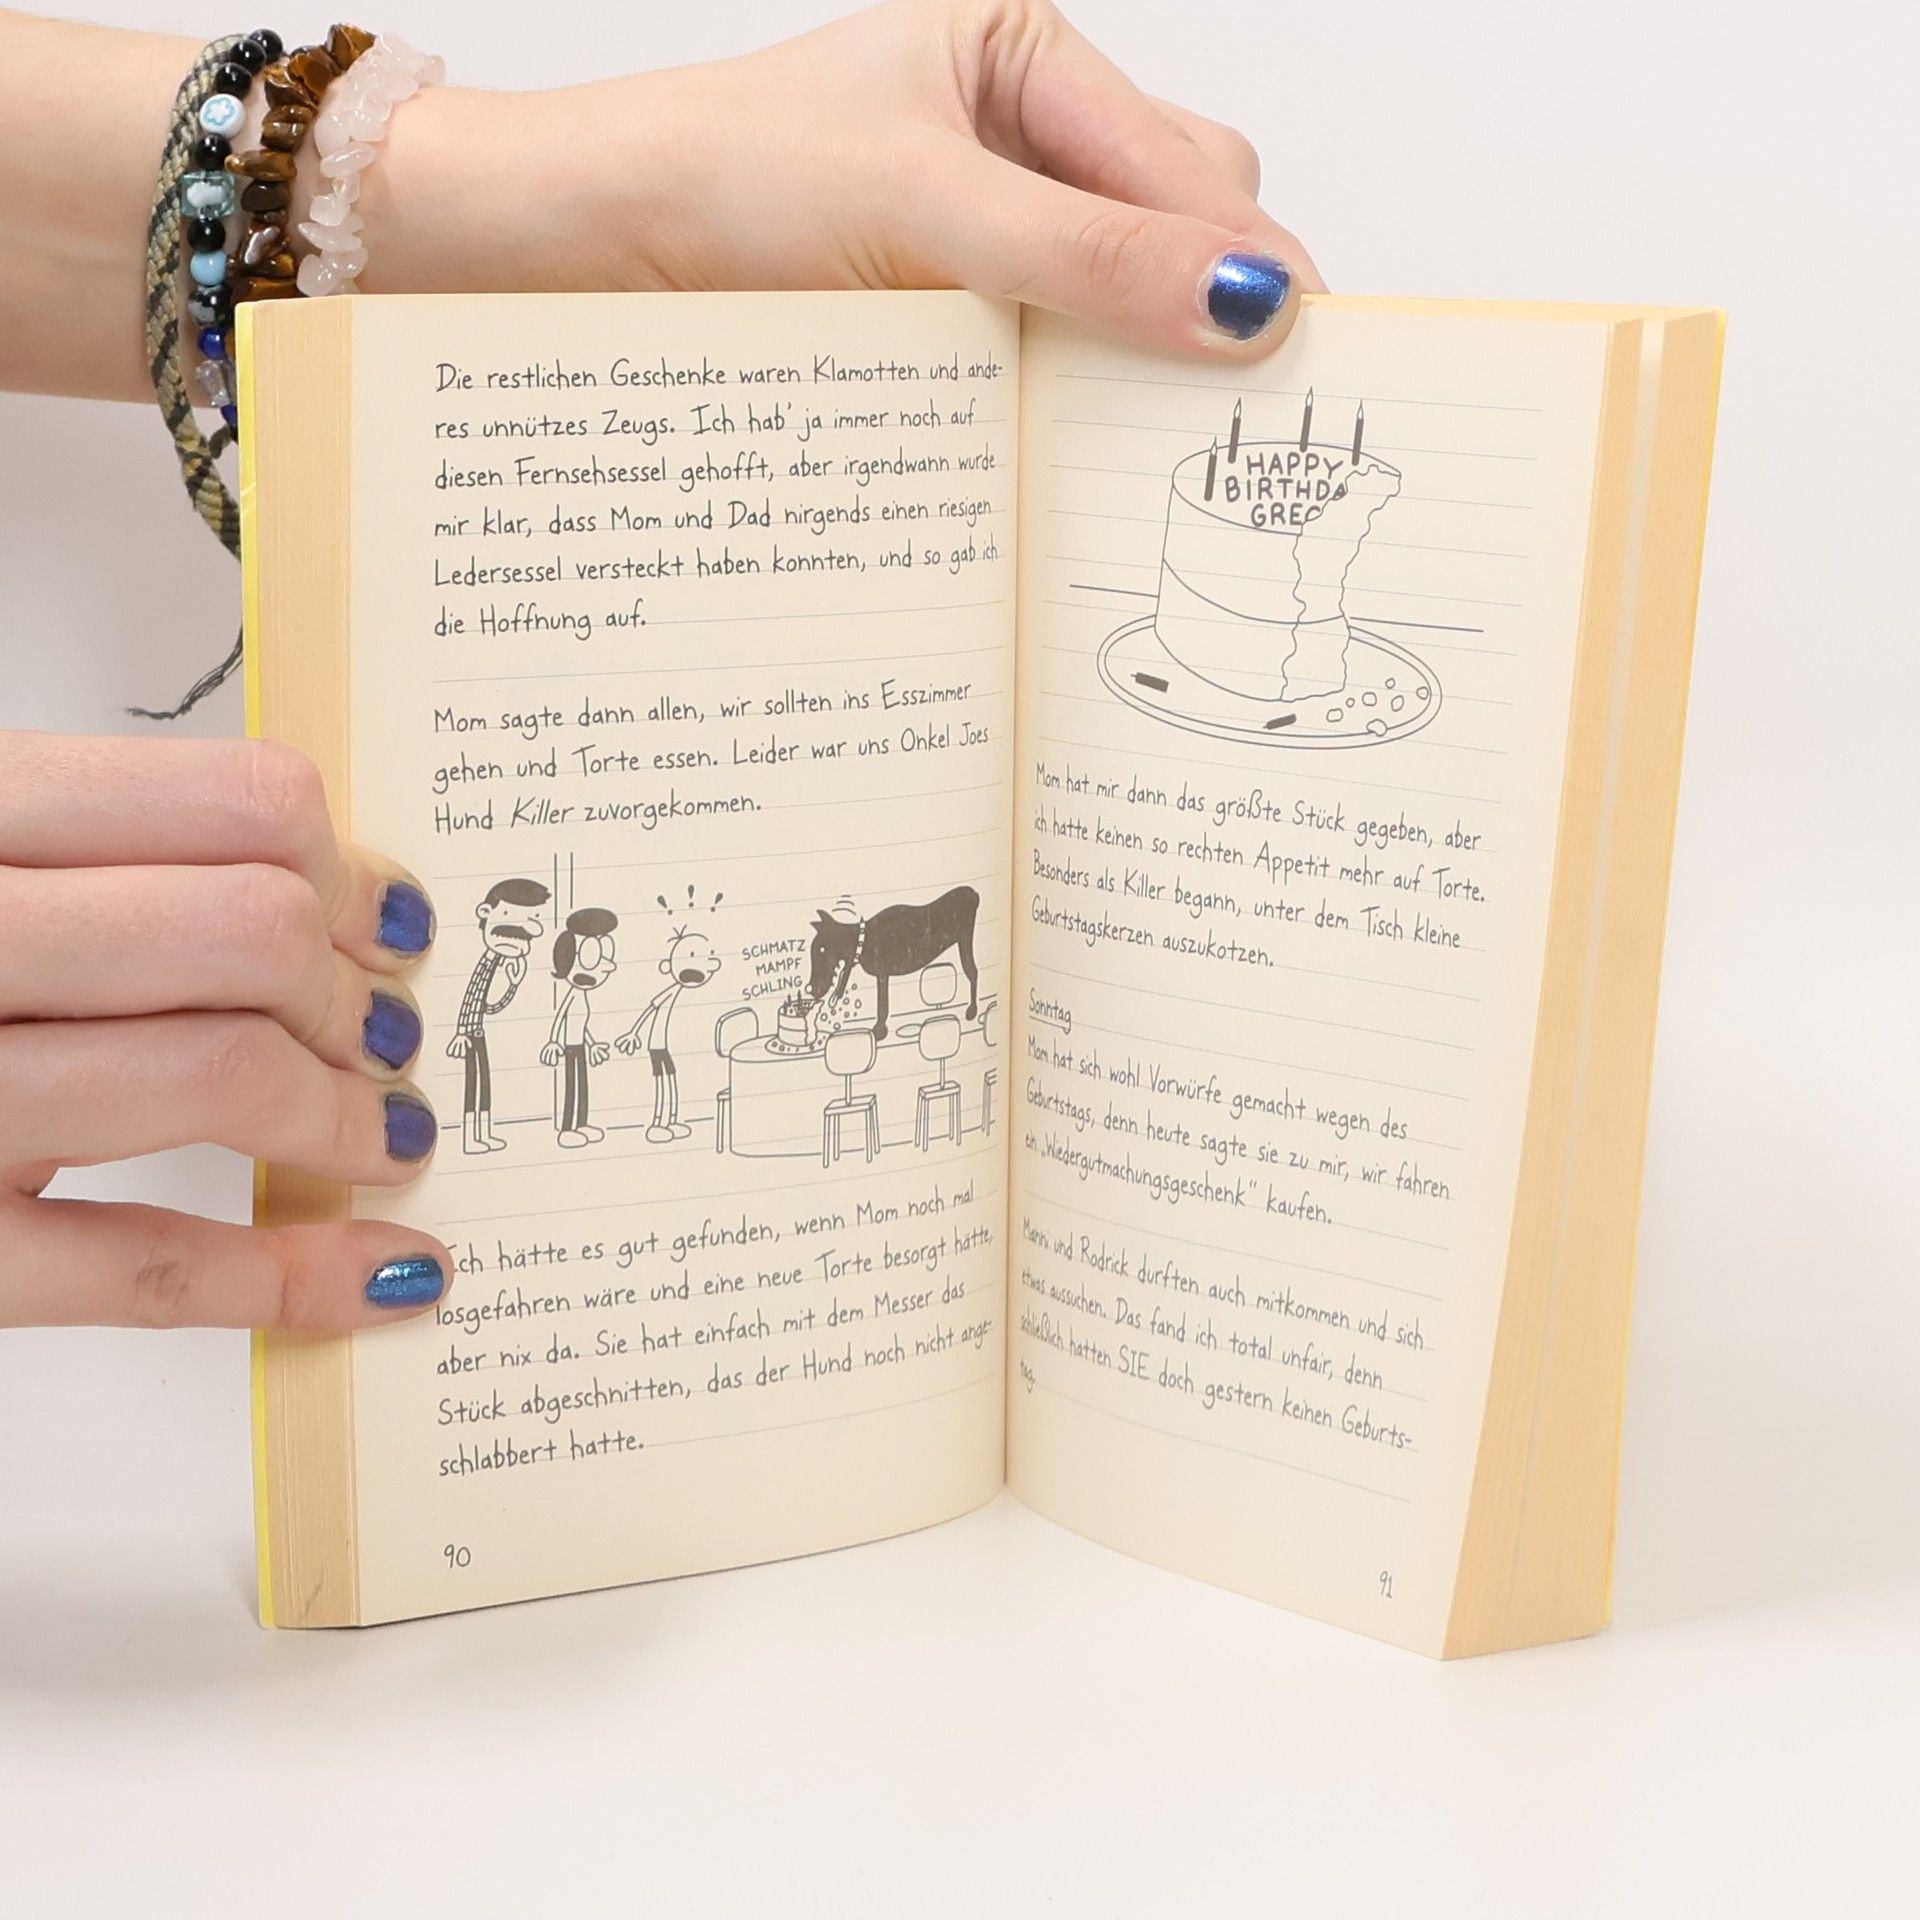 Die restlichen Geschenke waren Klamotten und ande-
res unnützes Zeugs. Ich hab' ja immer noch auf
diesen Fernsehsessel gehofft, aber irgendwann wurde
mir klar, dass Mom und Dad nirgends einen riesigen
Ledersessel versteckt haben konnten, und so gab ich
die Hoffnung auf.
Mom sagte dann allen, wir sollten ins Esszimmer
gehen und Torte essen. Leider war uns Onkel Joes
Hund Killer zuvorgekommen.
! ! !
SCHMATZ
MAMPF
SCHLING
Ich hätte es gut gefunden, wenn Mom noch mal
losgefahren wäre und eine neue Torte besorgt hätte,
aber nix da. Sie hat einfach mit dem Messer das
Stück abgeschnitten, das der Hund noch nicht ange-
schlabbert hatte.
90
HAPPY
BIRTHDA
GREG
Mom hat mir dann das größte Stück gegeben, aber
ich hatte keinen so rechten Appetit mehr auf Torte.
Besonders als Killer begann, unter dem Tisch kleine
Geburtstagskerzen auszukotzen.
Sonntag
Mom hat sich wohl Vorwürfe gemacht wegen des
Geburtstags, denn heute sagte sie zu mir, wir fahren
ein „Wiedergutmachungsgeschenk“ kaufen.
Manni und Rodrick durften auch mitkommen und sich
etwas aussuchen. Das fand ich total unfair, denn
schließlich hatten SIE doch gestern keinen Geburts-
tag.
91